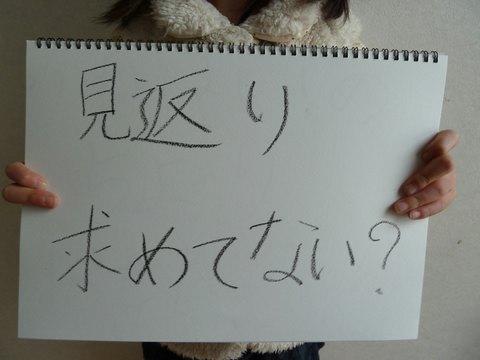 見返り
求めてない?